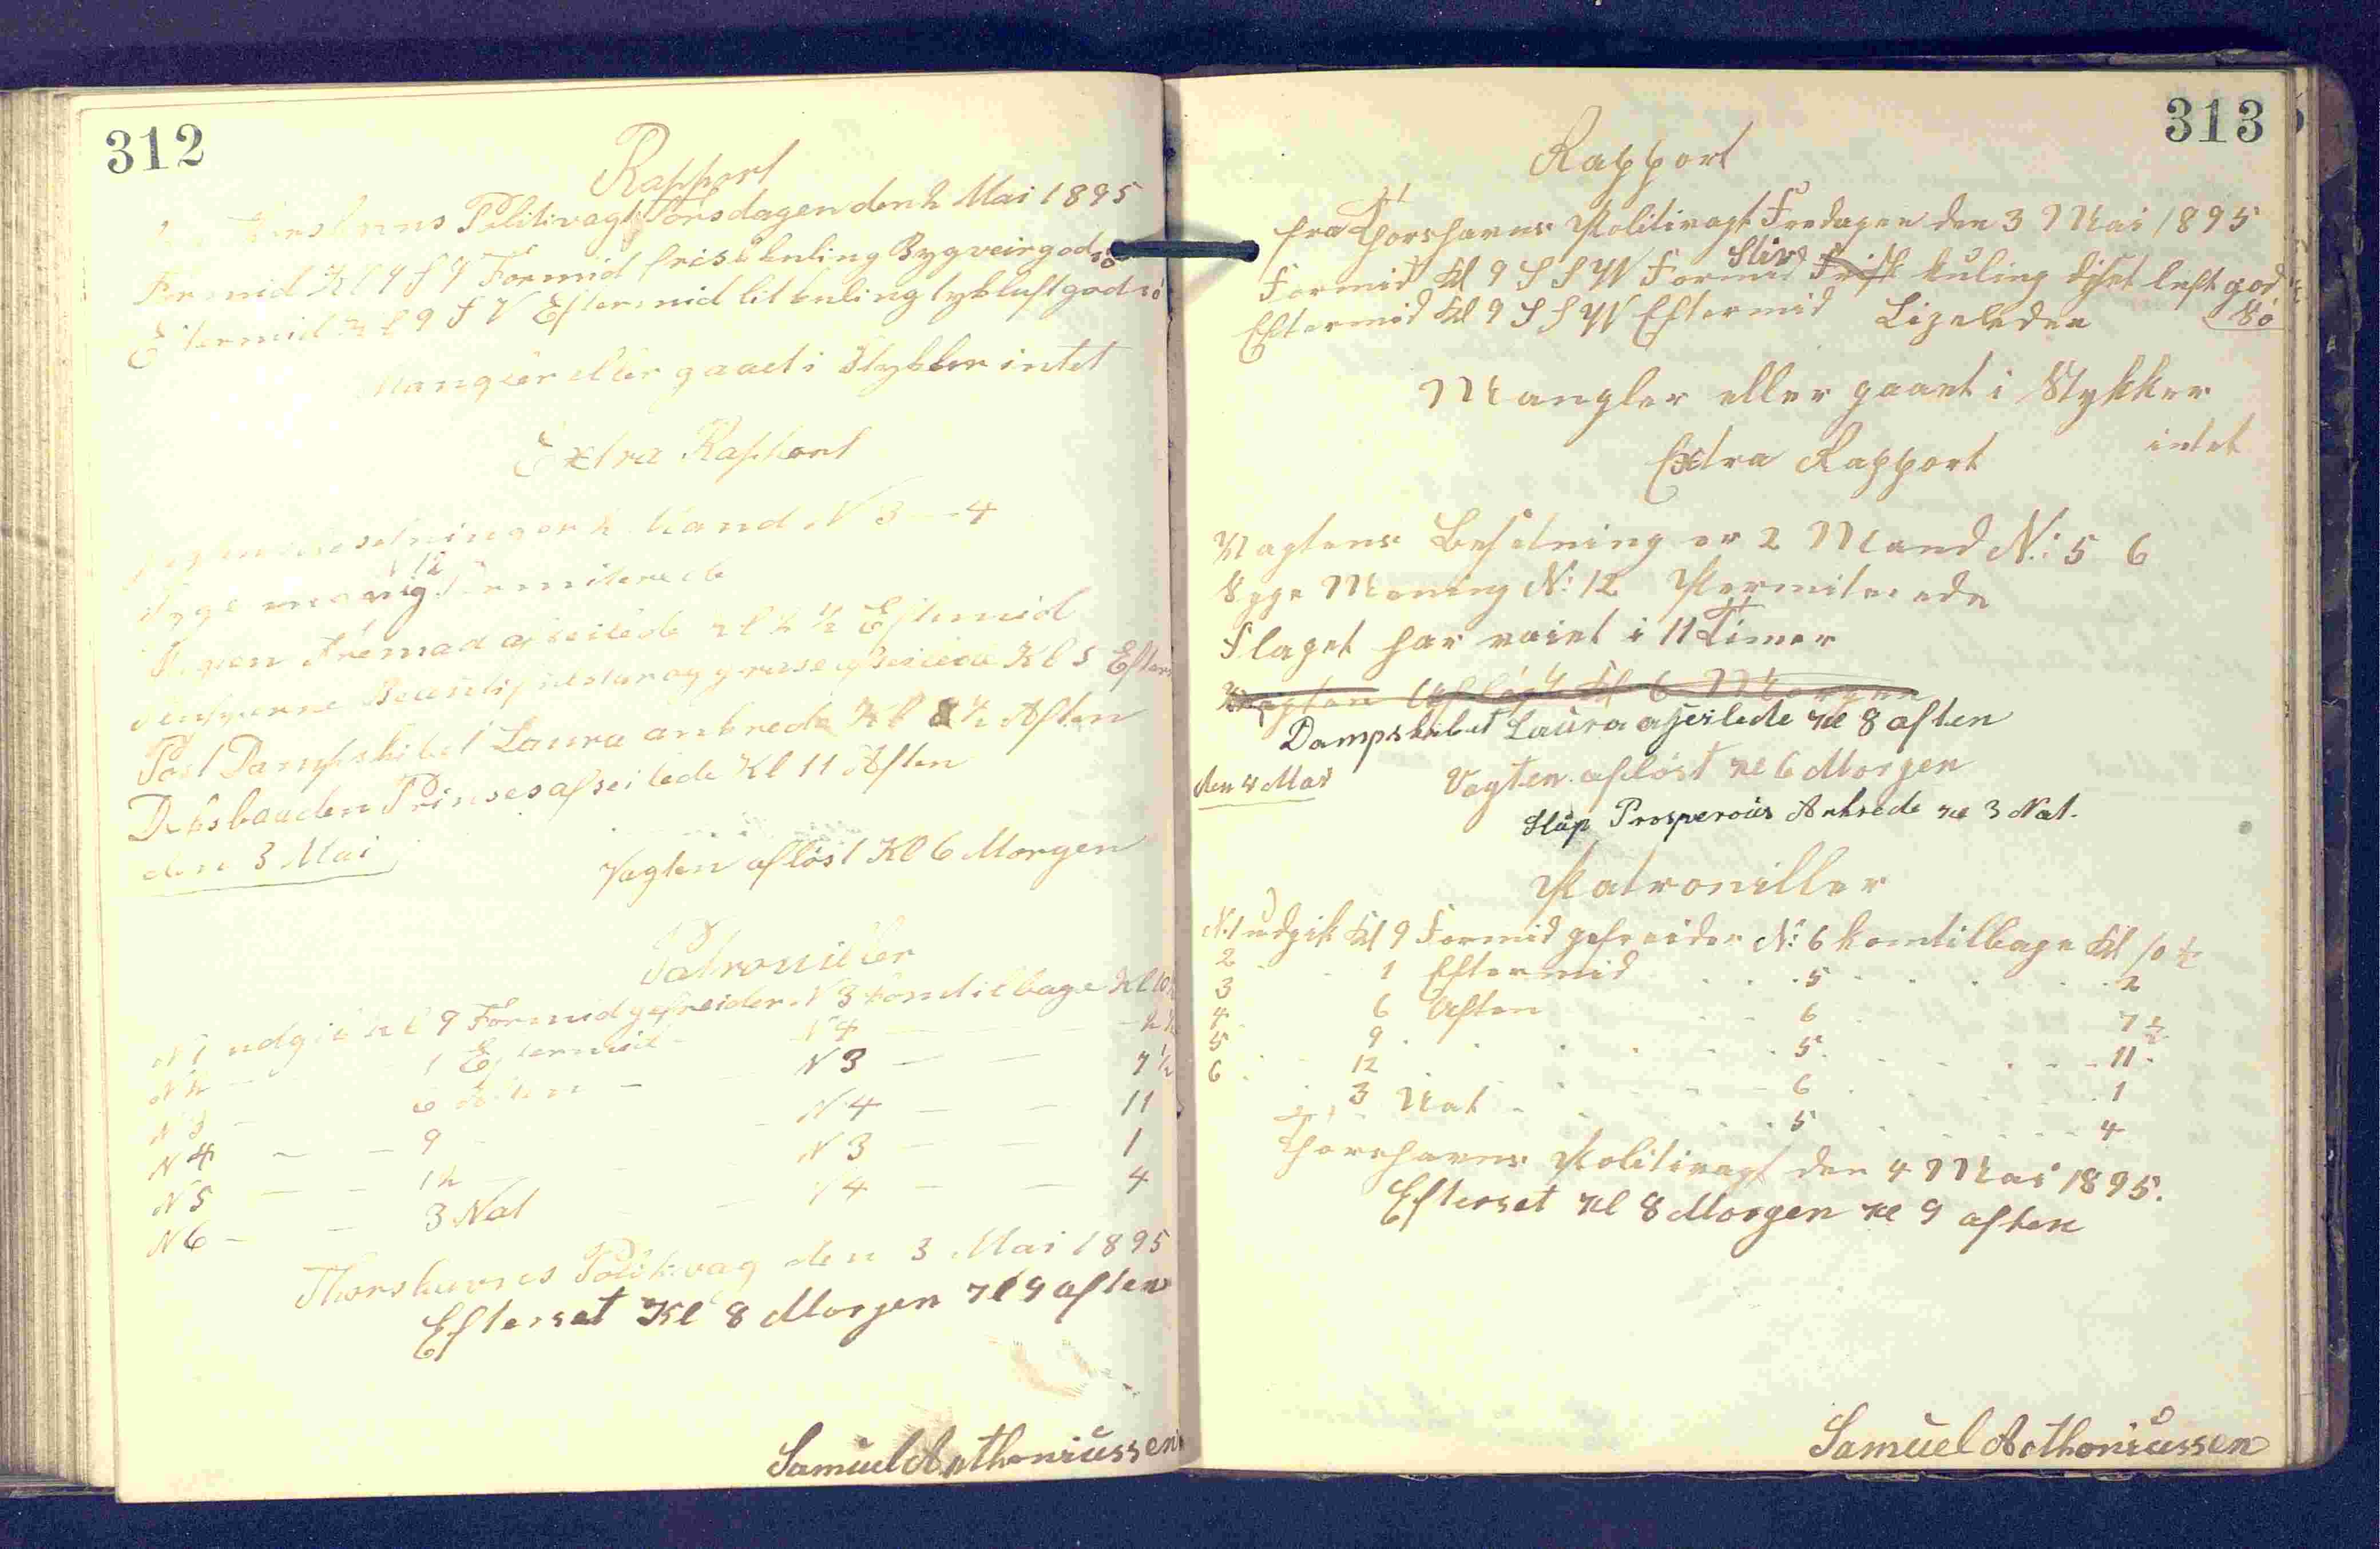 312
Rapport
Thorshavns Politivagt Torsdagen den 2 Mai 1895
Formid Kl 9 S V Formid frisk kuling Bygveir god sö
Eftermid Kl 9 S V Eftermid lit kuling tykluft god sö
Mangler eller gaaet i Stykker intet
Extra Rapport
Vagtens Besetning er 2 Mand N 3 — 4
Syge menig 12 Permiterede
Fremad afseilede Kl 2 1/2 Eftmid
afseilede Kl 5 Efterm
Post Dampskibet Laura ankrede Kl 8 1/2 Aften
Deksbaaden Prinses afseilede Kl 11 Aften
den 3 Mai
Vagten aflöst Kl 6 Morgen
Patrouiller
N 1 udgik Kl 9 Formid gefreider N 3 komtilbage Kl 10 1/2
N 2 — 1 Eftermid — N 4 — — 2 1/2
N 3 — 6 Aften — N 3 — — 7 1/2
N 4 — — 9 — N 4 — — 11
N 5 — — 12 — N 3 — — 1
N 6 — — 3 Nat — N 4 — — 4
Thorshavnes Politivag den 3 Mai 1895
Efterset Kl 8 Morgen Kl 9 aften
Samuel Anthoniussen
313
Rapport
fra Thorshavns Politivagt Fredagen den 3 Mai 1895
Formid Kl 9 S S W Formid Stiv Frisk kuling diset luft god
Eftermid Kl 9 S S W Eftermid Ligeledes Sö
Mangler eller gaaet i Stykker
intet
Extra Rapport
Vagtens Besetning er 2 Mand N: 5 6
Syge Mening N: 12 Permiterede
Flaget har vaiet i 11 Timer
Vagten Aflöst Kl 6 Morgen
Dampskibet Laura afseilede Kl 8 aften
den 4 Mai Vagten aflöst Kl 6 Morgen
Slup Prosperous Ankrede Kl 3 Nat.
Patroniller
N: 1 udgik Kl 9 Formid gefreider N: 6 komtilbage Kl 10 1/2
2 . . 1 Eftermid . . 5 . . 2
3 6 Aften . . 6 . . 7 1/2
4 9 . . 5 . . 11
5 12 . . 6 . . 1
6 3 Nat . . 5 . . 4
Thorshavns Politivagt den 4 Mai 1895.
Efterset Kl 8 Morgen Kl 9 aften
Samuel Anthoniussen